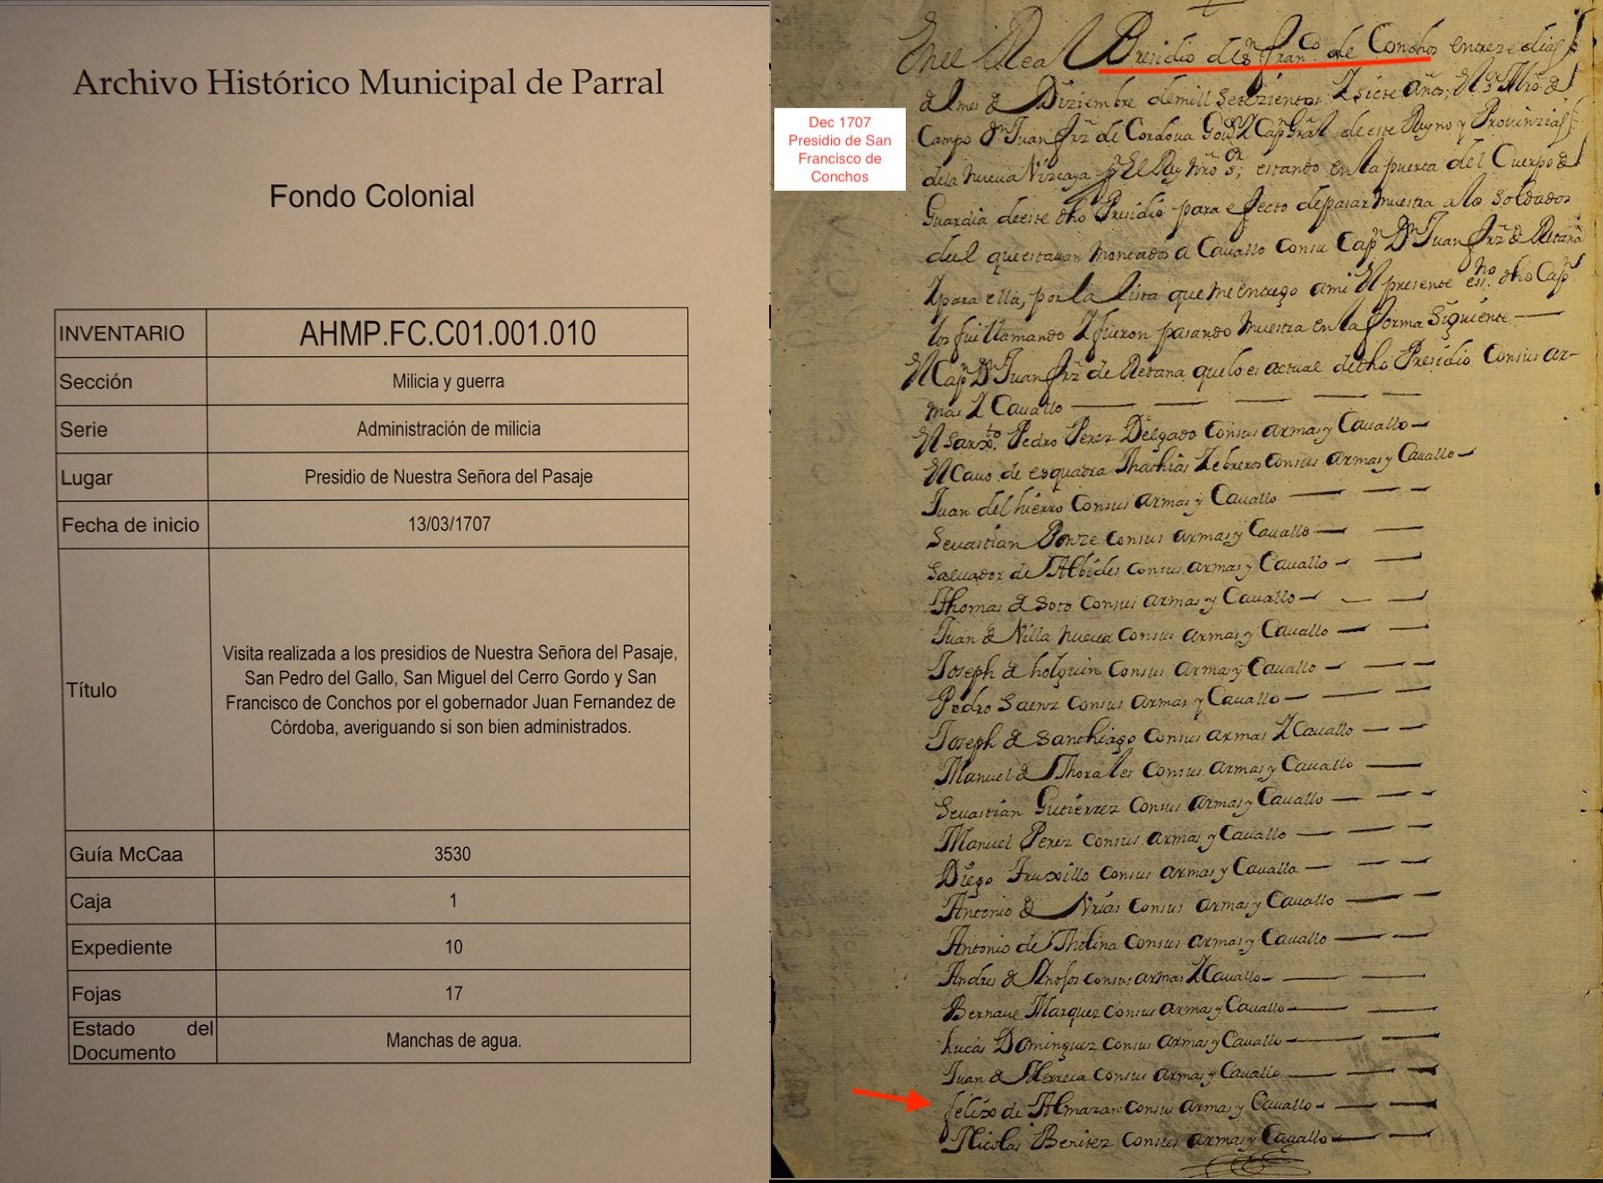 Archivo Histórico Municipal de Parral
Fondo Colonial
INVENTARIO AHMP.FC.C01.001.010
Sección Milicia y guerra
Serie Administración de milicia
Lugar Presidio de Nuestra Señora del Pasaje
Fecha de inicio 13/03/1707
Título Visita realizada a los presidios de Nuestra Señora del Pasaje,
San Pedro del Gallo, San Miguel del Cerro Gordo y San
Francisco de Conchos por el gobernador Juan Fernandez de
Córdoba, averiguando si son bien administrados.
Guía McCaa 3530
Caja 1
Expediente 10
Fojas 17
Estado del
Documento Manchas de agua.
Dec 1707
Presidio de San
Francisco de
Conchos
En el Real Presidio de sn franco de Conchos en treze dias
del mes de Diziembre de mill setezientos Y siete años;
Campo Dn Juan frz de Cordova Govor Y Capn Grâl de este Reyno y Provinzias
dela nueva Vizcaya por El Rey nro sr; estando en la puerta del Cuerpo de
Guardia deeste dho Presidio para efecto depasar muestra a los soldados
del que estavan montados a Cavallo consu Capn Dn Juan frz de Retana
Y para ella, por la lista que me entrego ami El presente essno dho Capn
los fui llamando Y fueron pasando muestra en la forma siguiente
El Capn Dn Juan frz de Retana que lo es actual de dho Presidio Consus ar-
mas Y Cauallo
El Sarxto Pedro Perez Delgado Consus armas y Cauallo
El Cauo de esquadra Mathias Zebreros consus armas y Cauallo
Juan del hierro Consus armas y Cauallo
Seuastian Ponze consus armas y Cauallo
Saluador de consus armas y Cauallo
Thomas de Soto Consus armas y Cauallo
Juan de Villa nueua consus armas y Cauallo
Joseph de holguin Consus armas y Cauallo
Pedro Saenz Consus armas y Cauallo
Joseph de Santhiago Consus armas Y Cauallo
Manuel de Morales Consus armas y Cauallo
Seuastian Gutierrez Consus armas y Cauallo
Manuel Perez Consus armas y Cauallo
Diego Truxillo Consus armas y Cauallo
Antonio de Consus armas y Cauallo
Antonio de Molina Consus armas y Cauallo
Andres de consus armas Y Cauallo
Bernaue Marquez Consus armas y Cauallo
Lucas Dominguez Consus armas y Cauallo
Juan de Herrera Consus armas y Cauallo
felixo de Almazan consus armas y Cauallo
Nicolas Benitez Consus armas y Cauallo